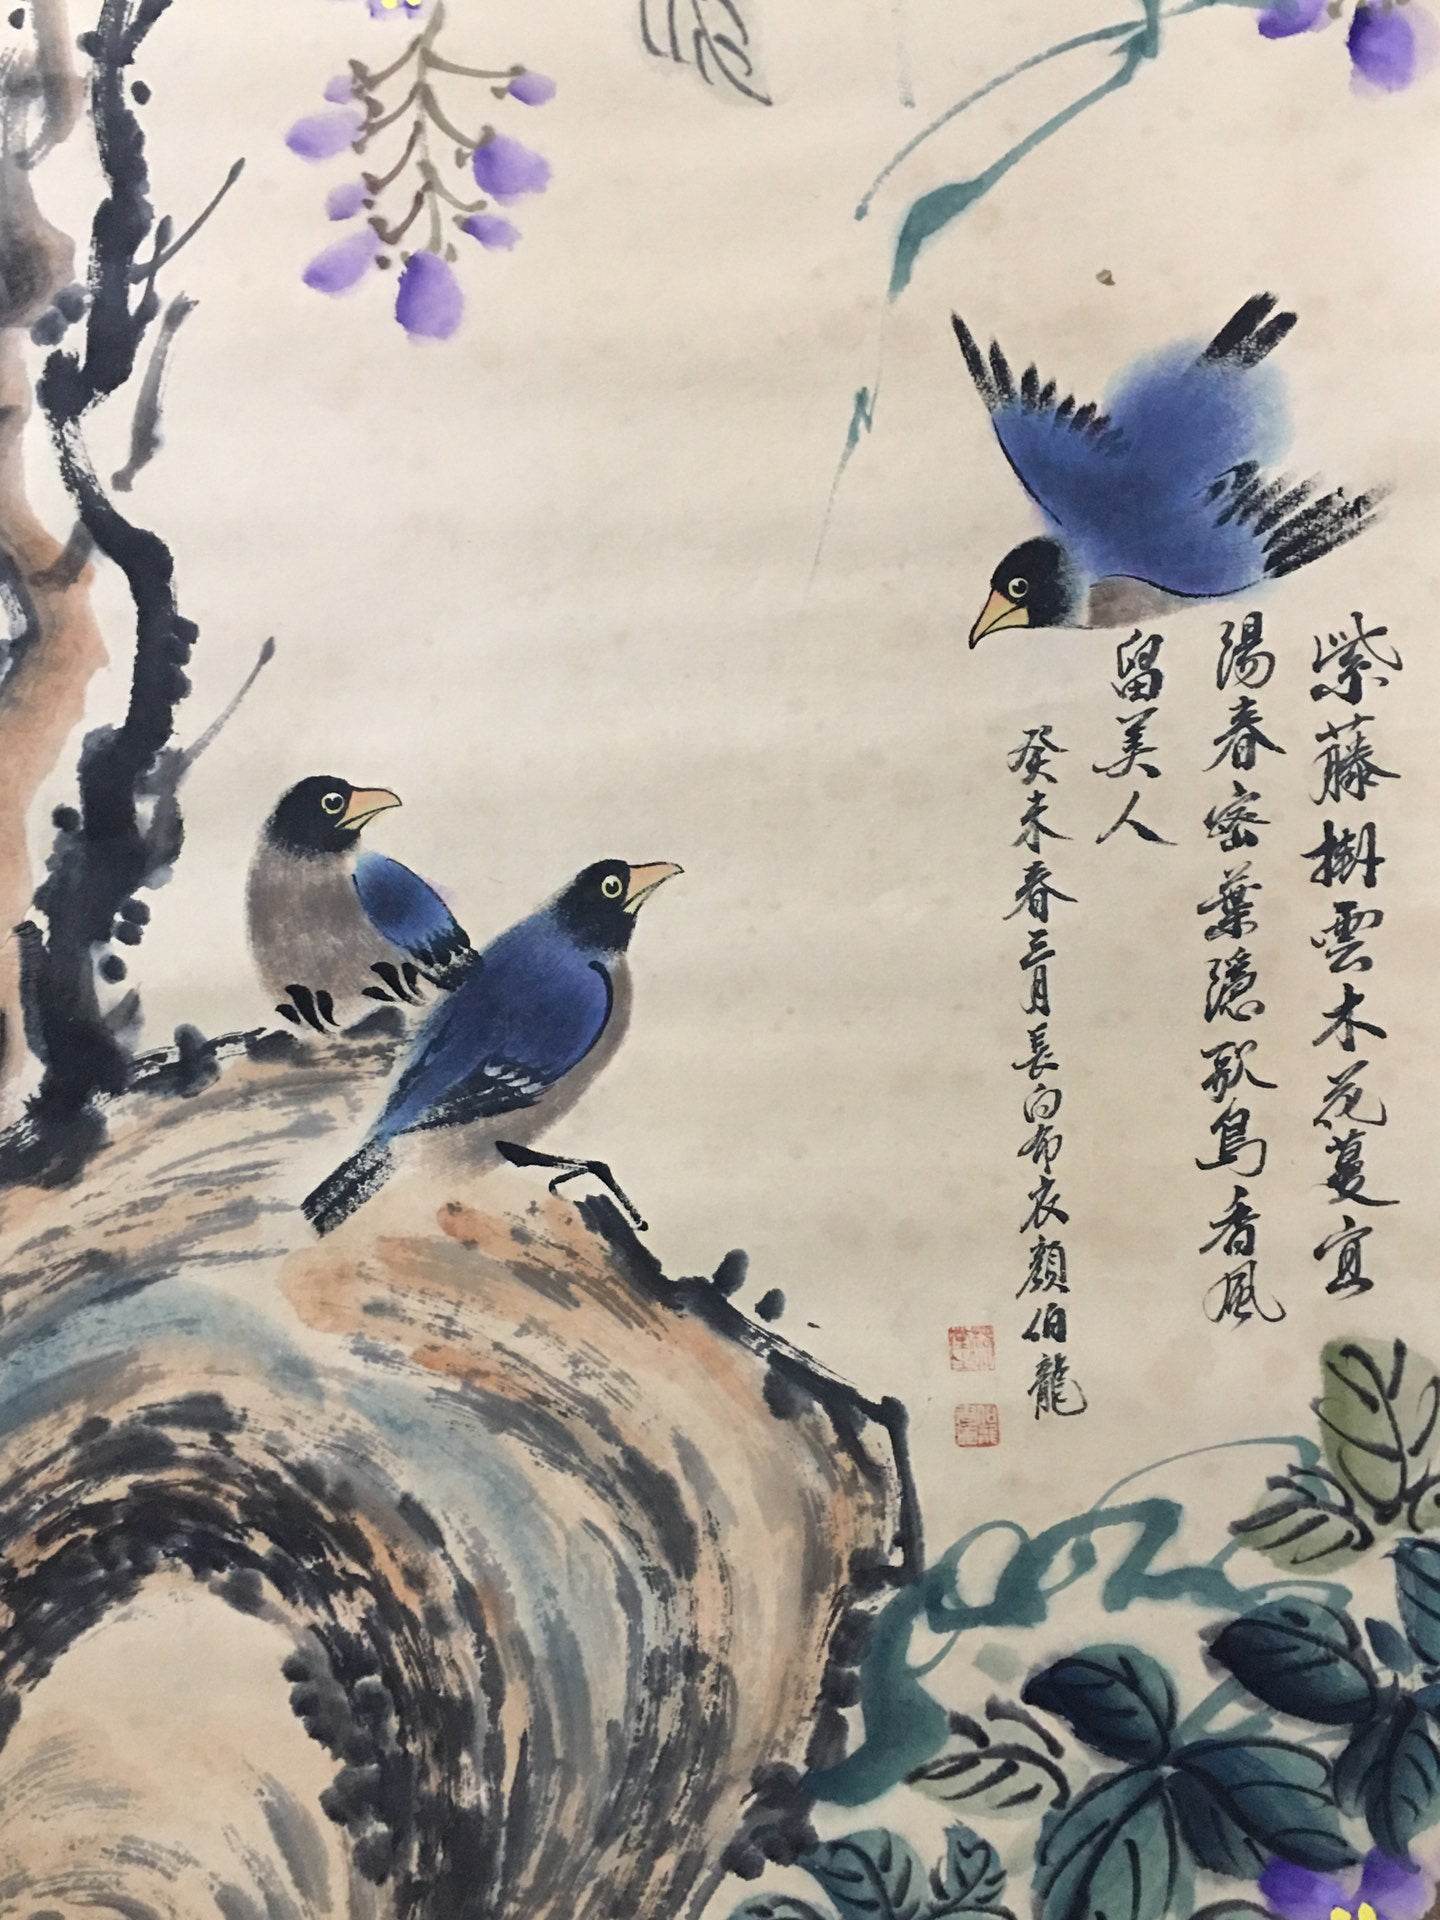 紫藤樹雲木花蔓宜
陽春密葉隱歌鳥香風
留美人
癸未春三月長白布衣顏伯龍